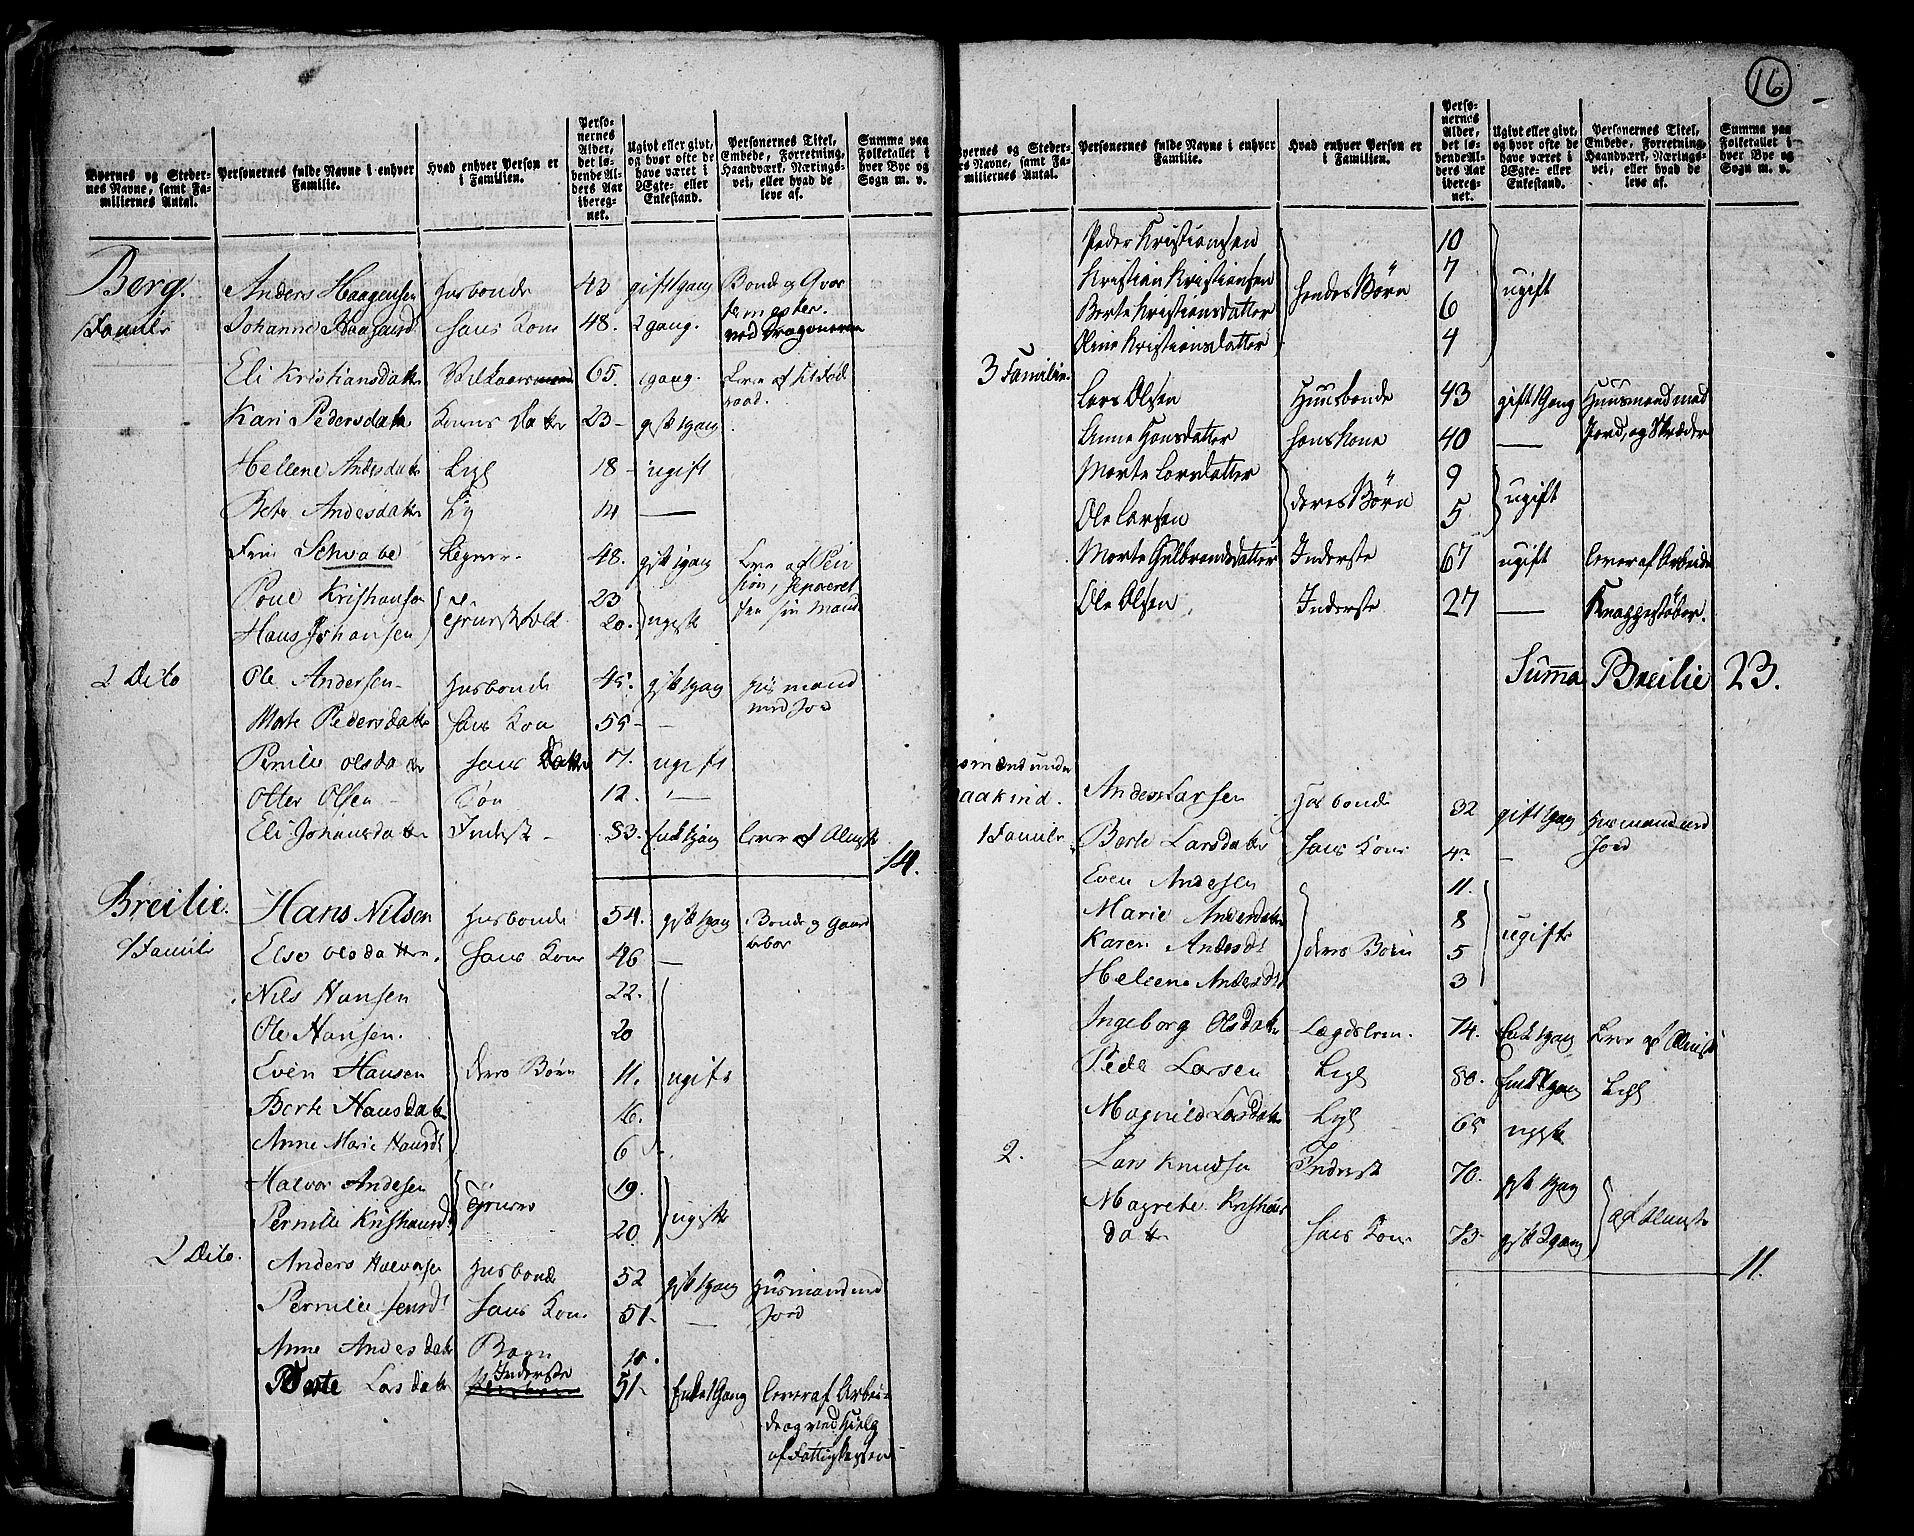 16
Byernes og Stedernes Navne, samt Familiernes Antal.
Personernes fulde Navne i enhver Familie.
Hvad enhver Person er i Familien.
Personernes Alder, det løbende Alders Aar iberegnet.
Ugivt eller givt, og hvor ofte de have været i Ægte- eller Enkestand.
Personernes Titel, Embede, Forretning, Haandværk, Nærings-vei, eller hvad de leve af.
Summa paa Folketallet i hver Bye og Sogn m. v.
Berg. Anders Haagensen Husbonde 43 gift 1gang Bonde og Qvar
1 Familie Johanne hans Kone 48. 2 gang. termester
ved Dragonerne
Eli Kristiansdatter 65. 1gang. Lever af
Kari Pedersdatter Datter 23 gift 1gang
Hellene Andersdatter Ligl 18 ugift
Berte Andersdatter Lig 14 —
Schwabe 48. gift 1gang Lever af Pen
Poul Kristiansen 23 sion, separeret
Hans Johansen Tjenestfolk 20. ugifte fra sin Mand
2 Dito Ole Andersen Husbonde 45. gift 1gang Husmand
med Jord
Marte Pedersdatter hans Kone 55 —
Pernilie Olsdatter hans Datter 17. ugift
Otter Olsen Søn 12. —
Eli Johansdatter Inderst 83. Enke 1gang lever af Almisse
14.
Breilie. Hans Nilsen Husbonde 54. gift 1gang Bonde og Gaard
beboer
1 Familie Else Olsdatter. hans Kone 46 —
Nils Hansen 22.
Ole Hansen. 20
Even Hansen deres Børn 11. ugifte
Berte Hansdatter 16.
Anne Marie Hansdt 6
Halvor Andersen 19.
Pernilie Kristiansdt Tjenere 20 ugifte
2 Dito. Anders Halvorsen Husbonde 52 gift 1gang Husmand med
Pernilie Jensdt hans Kone 51 — Jord
Anne Andersdatter Barn
Berte Larsdatter Inderste 51 Enke 1 Gang lever af Arbei-
de og ved Hielp
af Fattigkassen
Byernes og Stedernes Navne, samt Familiernes Antal.
Personernes fulde Navne i enhver Familie.
Hvad enhver Person er i Familien.
Personernes Alder, det løbende Alders Aar iberegnet.
Ugivt eller givt, og hvor ofte de have været i Ægte- eller Enkestand.
Personernes Titel, Embede, Forretning, Haandværk, Nærings-vei, eller hvad de leve af.
Summa paa Folketallet i hver Bye og Sogn m. v.
Peder Kristiansen 10
Kristian Kristiansen hendes Børn 7 ugift
Berte Kristiansdatter 6
Oline Kristiansdatter 4
3 Familie Lars Olsen Huusbonde 43 gift 1 Gang Huusmand med
Anne Hansdatter hans Kone 40 — Jord, og Skræder
Marte Larsdatter 9
Ole Larsen deres Børn 5 ugift
Marte Gulbrandsdatter Inderste 67 ugift lever af Arbeide
Ole Olsen Inderste 27 — Knappestøber.
Summa Breilie 23.
Anders Larsen Husbonde 32 gift 1gang Husmand med
1 Familie Berte Larsdatter hans Kone 43 — Jord
Even Andersen 11.
Marie Andersdatter 8
Karen Andersdt deres Børn 5 ugifte
Hellene Andersdt 3
Ingeborg Olsdatter Lægdslem. 74. Enke 1gang Lever af Almisse
Peder Larsen Ligl 80. Enke 1gang Ligl
Magnild Larsdatter Ligl 65 ugift
2. Lars Knudsen Inderst 70. gift 1gang
Magrete Kristians
datter hans Kone 73 gift 2gang af Almisse
11.